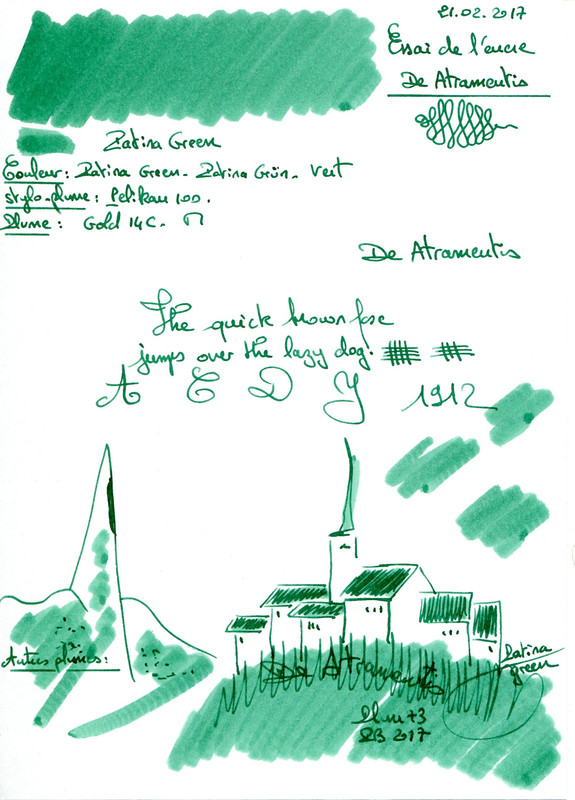 21.02.2017
Essai de l'encre
De Atramentis
Patina Green
Couleur: Patina Green - Patina Grün - Vert
stylo-plume: Pelikan 100.
Plume: Gold 14C - M
De Atramentis
The quick brown fox
jumps over the lazy dog.
A C D Y 1912
Autres plumes:
De Atramentis
Patina
green
2017